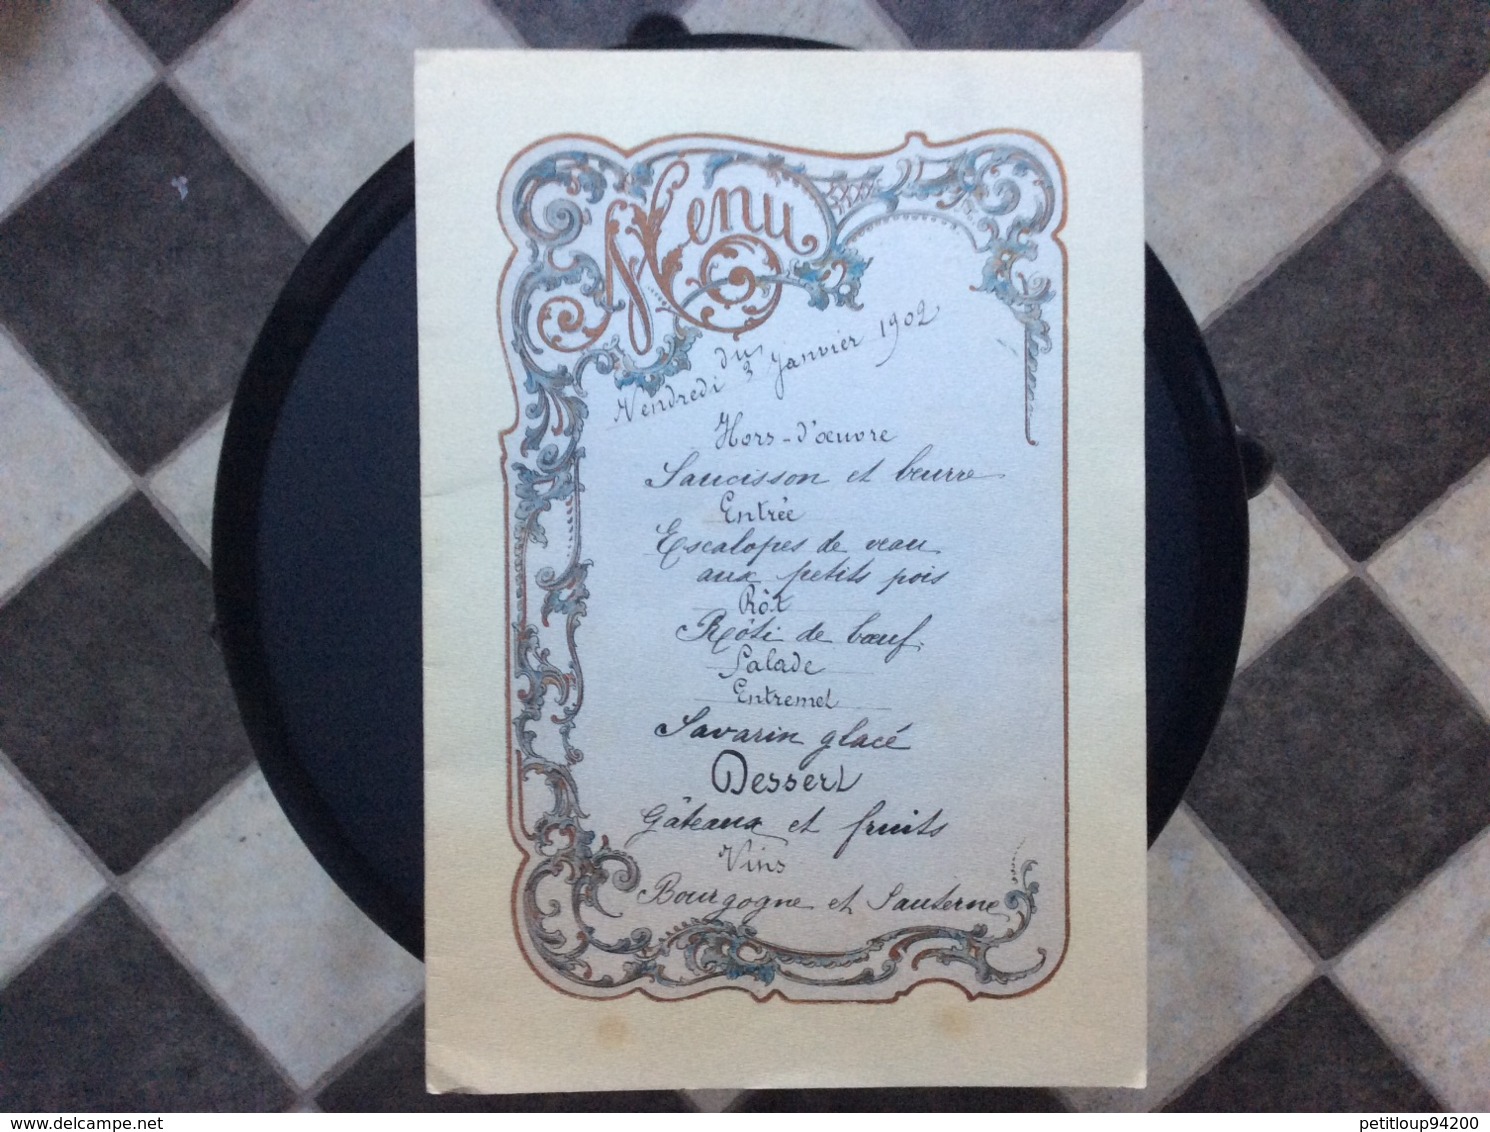 Menu
du
Vendredi 3 Janvier 1902
Hors-d'œuvre
Saucisson et beurre
Entrée
Escalopes de veau
aux petits pois
Rôt
Rôti de bœuf.
Salade
Entremet
Savarin glacé
Dessert
Gâteaux et fruits
Vins
Bourgogne et Sauterne
© delcampe.net
petitloup94200